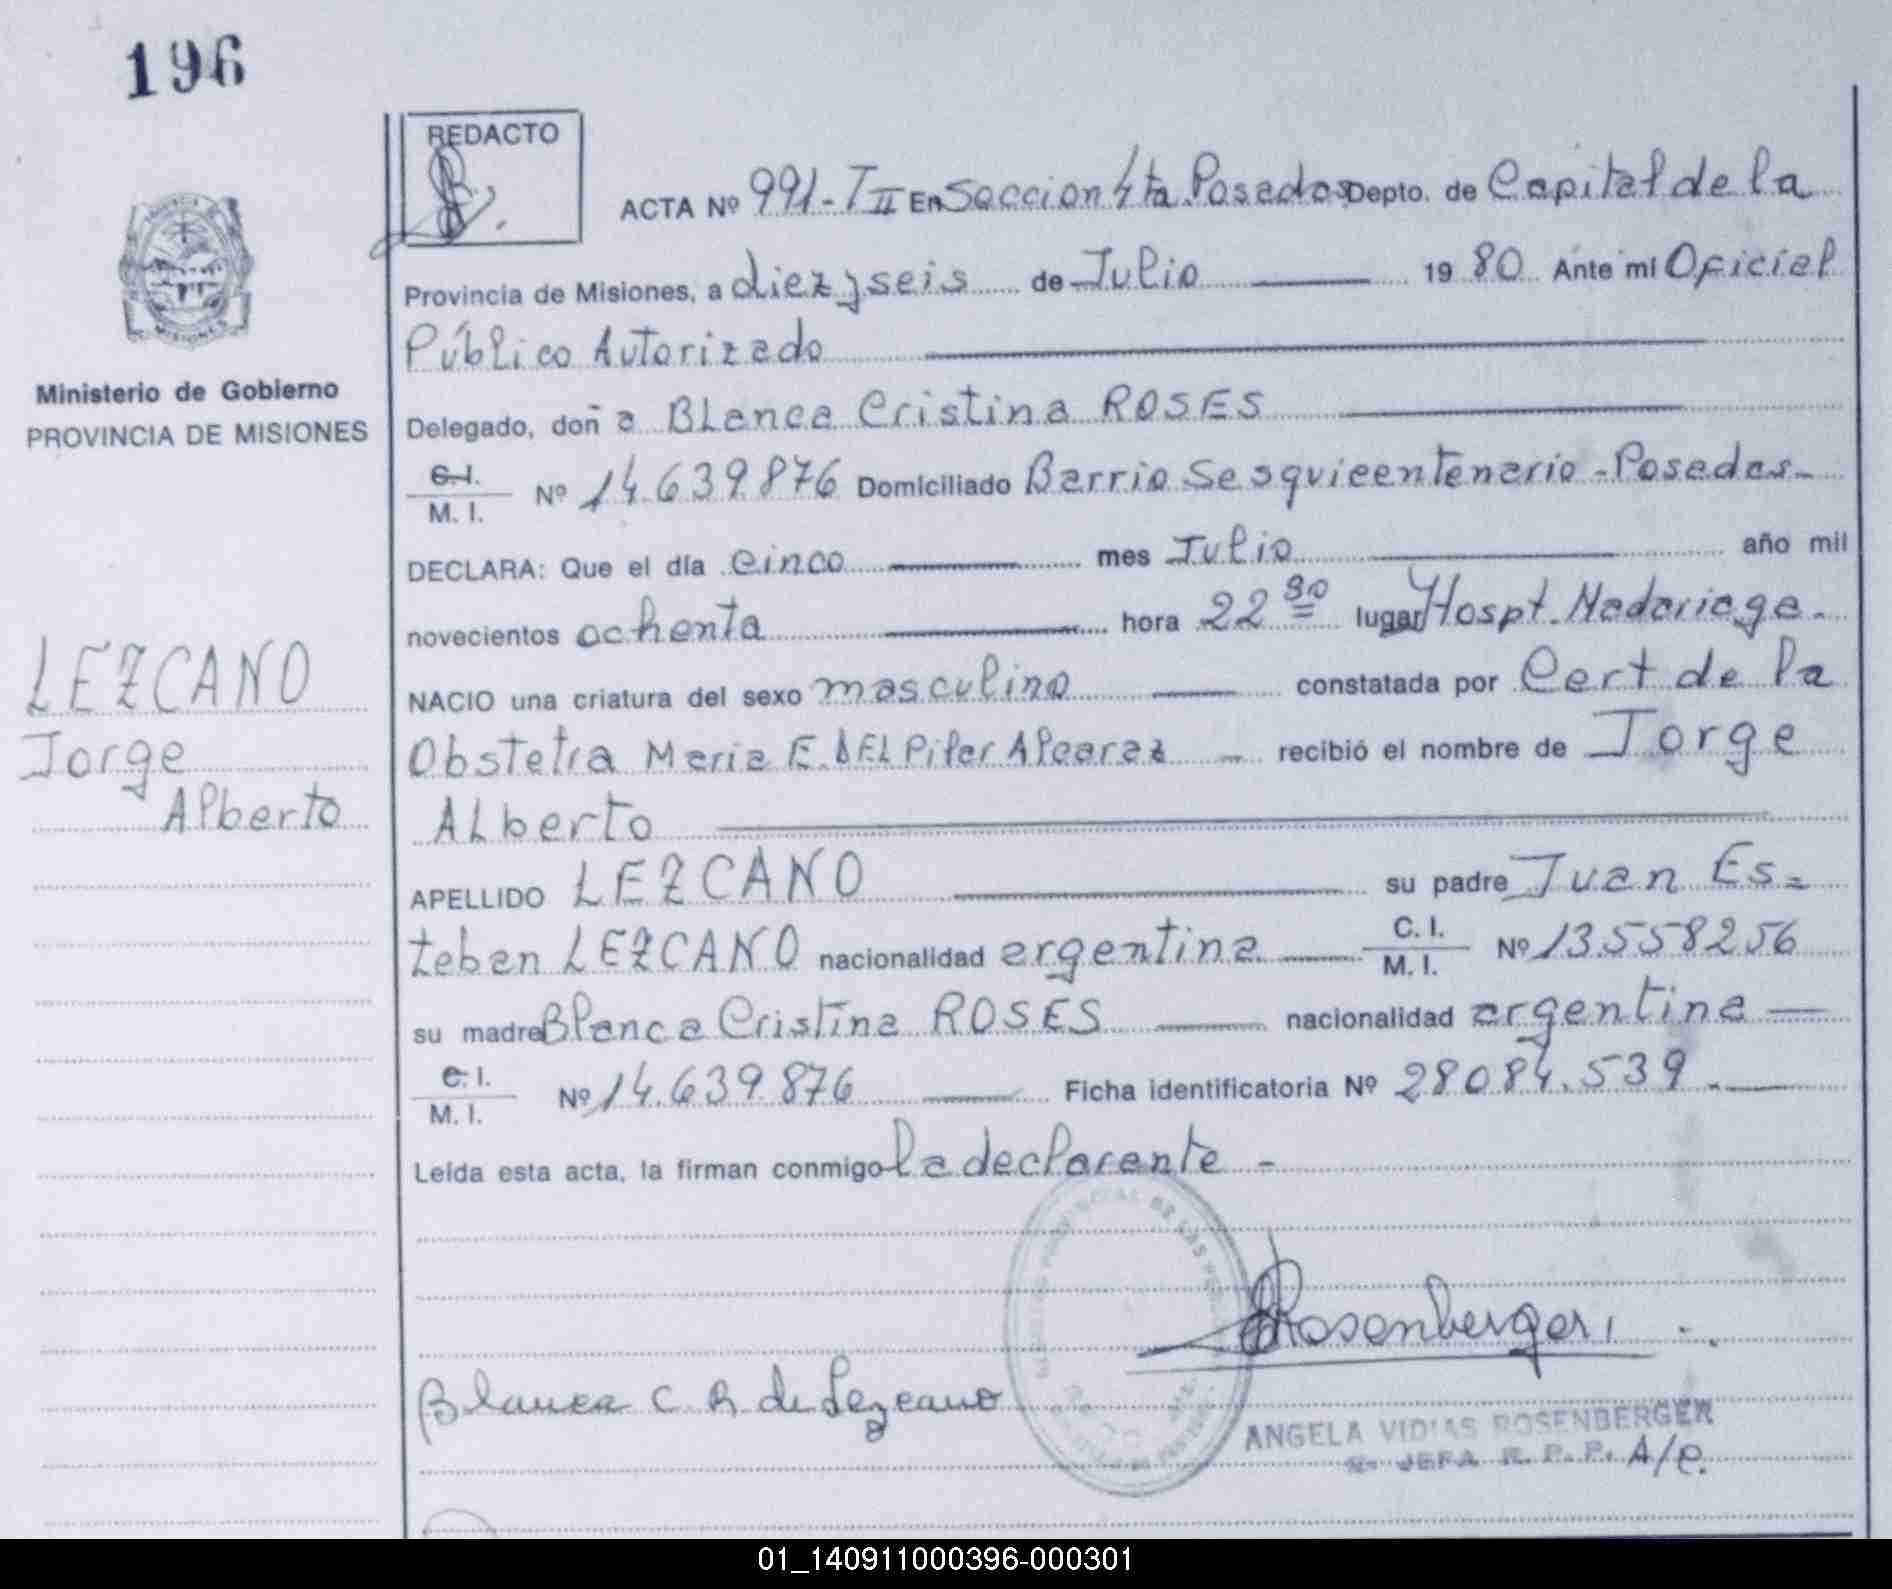 196
REDACTO
ACTA Nº 991-T II En Seccion 4ta. Posadas Depto. de Capital de la
Provincia de Misiones, a diez y seis de Julio 19 80 Ante mi Oficial
Público Autorizado
Ministerio de Gobierno
PROVINCIA DE MISIONES
Delegado, doñ a Blanca Cristina ROSES
C.I. / M. I. Nº 14.639.876 Domiciliado Barrio Sesquicentenario - Posadas-
DECLARA: Que el día cinco mes Julio año mil
novecientos ochenta hora 22 30 lugar Hospt. Madariaga.
LEZCANO
Jorge
Alberto
NACIO una criatura del sexo masculino constatada por Cert de la
Obstetra Maria E. DEL Pilar Alcaraz recibió el nombre de Jorge
Alberto
APELLIDO LEZCANO su padre Juan Es=
teban LEZCANO nacionalidad argentina C. I. / M. I. Nº 13.558256
su madre Blanca Cristina ROSES nacionalidad argentina
C. I. / M. I. Nº 14.639.876 Ficha identificatoria Nº 28084.539.
Leída esta acta, la firman conmigo la declarante -
Rosenberger
Blanca C R de Lezcano
ANGELA VIDIAS ROSENBERGER
JEFA R. P. P. A/C.
01_140911000396-000301